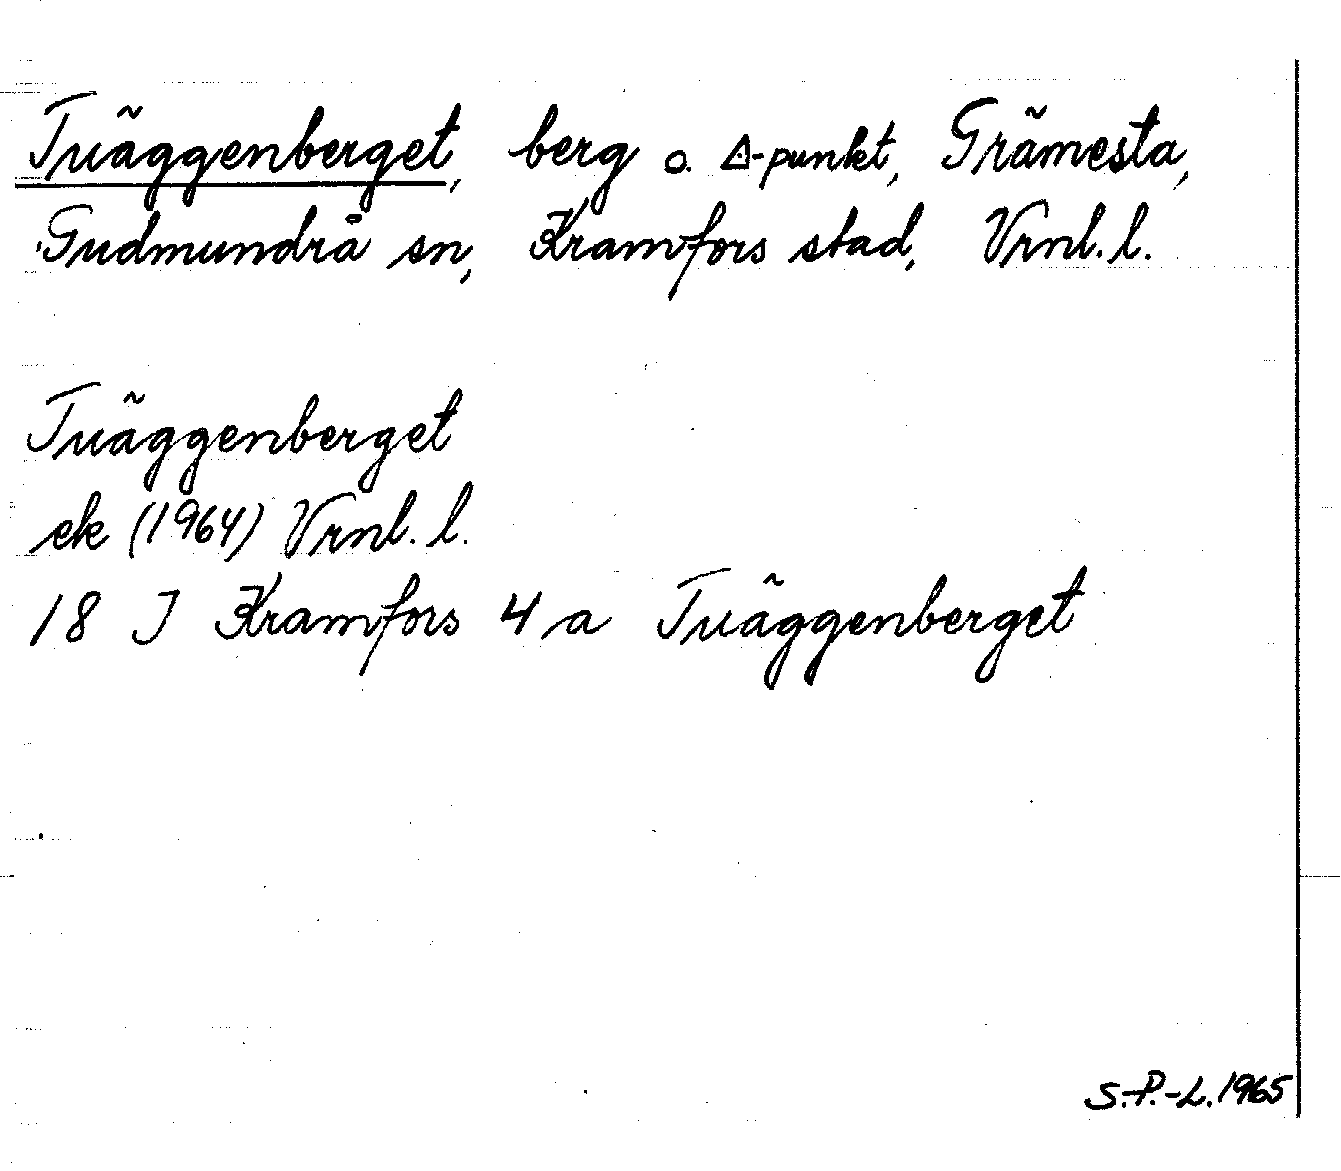 Tväggenberget, berg o. △-punkt, Grämesta,
Gudmundrå sn, Kramfors stad, Vrnl. l.
Tväggenberget
ek (1964) Vrnl. l.
18 J Kramfors 4 a Tväggenberget
S.P.-L. 1965